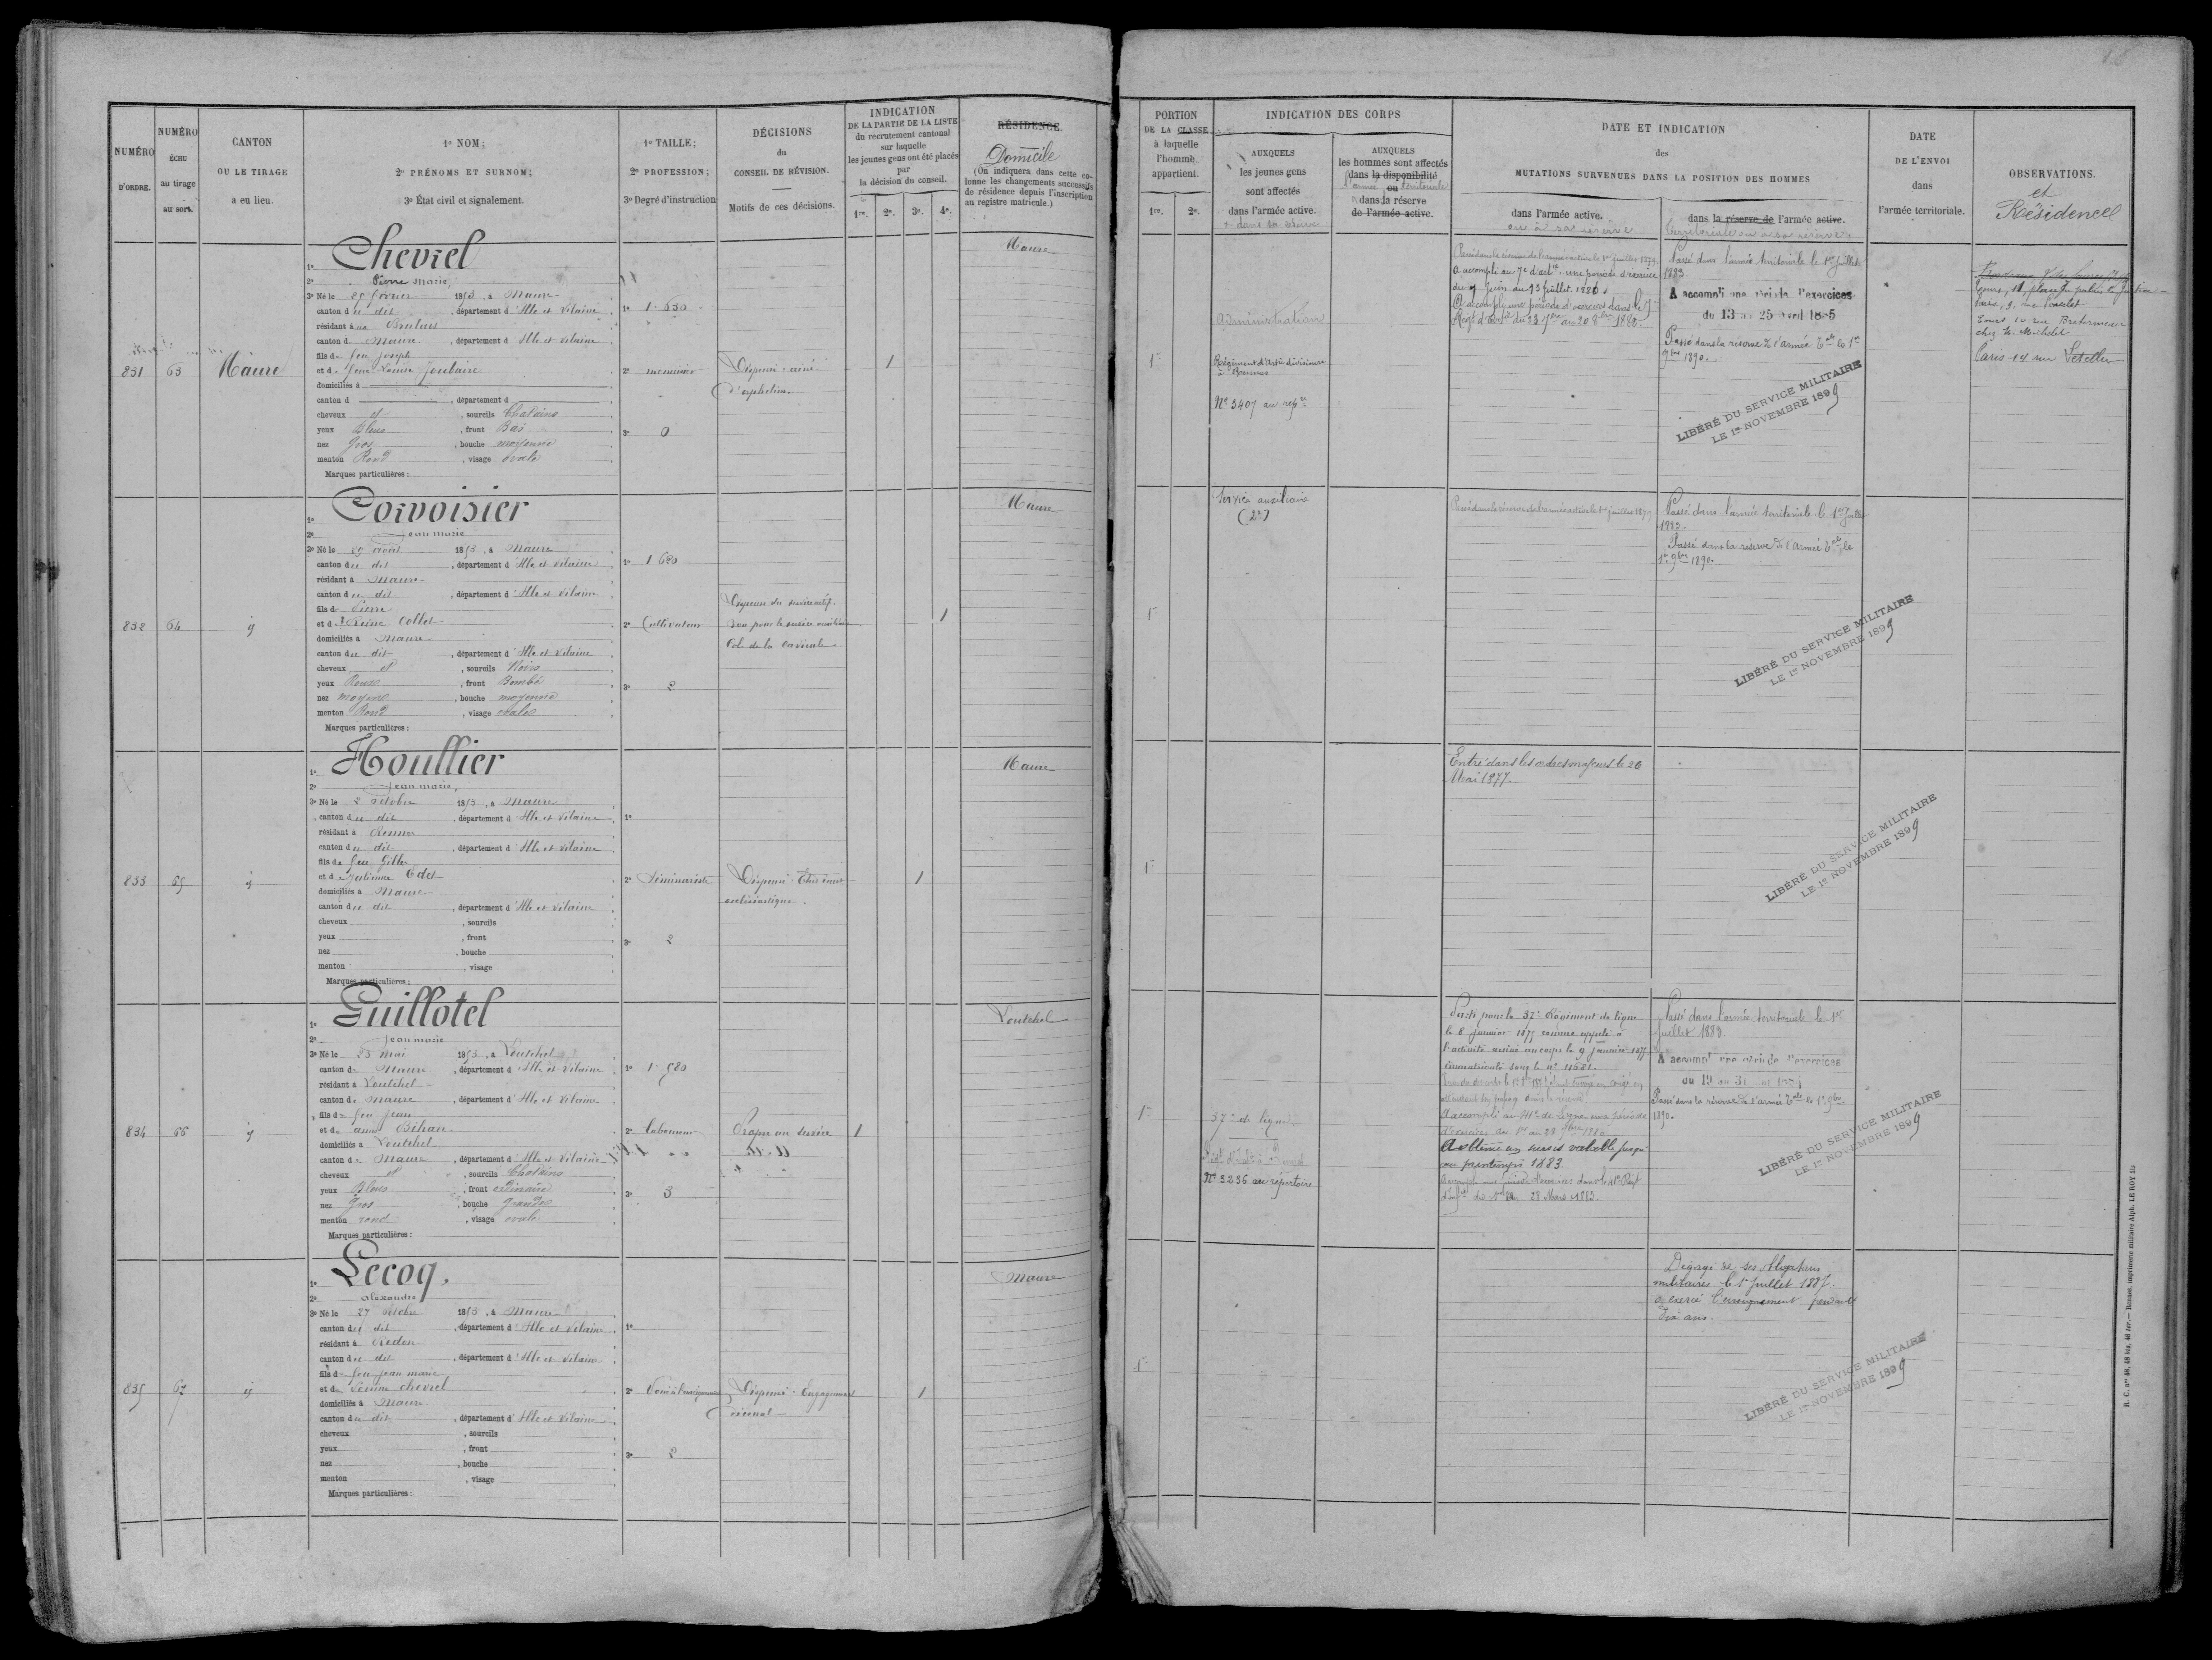 NUMÉRO D'ORDRE.
NUMÉRO ÉCHU au tirage au sort.
CANTON OU LE TIRAGE a eu lieu.
1º NOM;
2º PRÉNOMS ET SURNOM;
3º État civil et signalement.
1º TAILLE;
2º PROFESSION;
3º Degré d'instruction
DÉCISIONS du CONSEIL DE RÉVISION.
Motifs de ces décisions.
INDICATION
DE LA PARTIE DE LA LISTE
du recrutement cantonal
sur laquelle
les jeunes gens ont été placés
par
la décision du conseil.
1re. 2e. 3e. 4e.
RÉSIDENCE.
Domicile
(On indiquera dans cette co-
lonne les changements successifs
de résidence depuis l'inscription
au registre matricule.)
831
63
Maure
1º Chevrel
2º Pierre Marie,
3º Né le 25 février 1853, à Maure
canton du dit, département d'Ille et Vilaine
résidant à
canton de Maure, département d'Ille et Vilaine
fils de feu Joseph
et de feue Louise Joubaire
domiciliés à
canton d , département d
cheveux et , sourcils Chatains
yeux Bleus , front Bas
nez Gros , bouche moyenne
menton Rond , visage ovale
Marques particulières :
1º 1.630
2º menuisier
3º 0
Dispensé : ainé
d'orphelins.
1
Maure
832
64
id
1º Corvoisier
2º Jean marie
3º Né le août 1853, à Maure
canton du dit, département d'Ille et Vilaine
résidant à Maure
canton du dit, département d'Ille et Vilaine
fils de Pierre
et de Reine Collet
domiciliés à Maure
canton du dit, département d'Ille et Vilaine
cheveux et , sourcils Noirs
yeux Roux , front Bombé
nez moyen , bouche moyenne
menton Rond , visage ovale
Marques particulières :
1º 1 680
2º Cultivateur
3º 2
Dispensé du service actif.
Bon pour le service auxiliaire
1
Maure
833
65
id
1º Houllier
2º Jean marie,
3º Né le 2 octobre 1853, à Maure
canton du dit, département d'Ille et Vilaine
résidant à Rennes
canton du dit, département d'Ille et Vilaine
fils de feu Gilles
et de Julienne Odet
domiciliés à Maure
canton du dit, département d'Ille et Vilaine
cheveux , sourcils
yeux , front
nez , bouche
menton , visage
Marques particulières :
1º
2º Séminariste
3º 2
Dispensé : Elève
ecclésiastique.
1
Maure
834
66
id
1º Guillotel
2º Jean marie
3º Né le 23 mai 1853, à Loutehel
canton de Maure, département d'Ille et Vilaine
résidant à Loutehel
canton de Maure, département d'Ille et Vilaine
fils de feu Jean
et de anne Bihan
domiciliés à Loutehel
canton de Maure, département d'Ille et Vilaine
cheveux et , sourcils Chatains
yeux Bleus , front ordinaire
nez Gros , bouche Grande
menton rond , visage ovale
Marques particulières :
1º 1.580
2º laboureur
3º 3
Propre au service
1
Loutehel
835
67
id
1º Lecoq,
2º alexandre
3º Né le 27 octobre 1853, à Maure
canton du dit, département d'Ille et Vilaine
résidant à Redon
canton du dit, département d'Ille et Vilaine
fils de feu Jean marie
et de Perrine chevrel
domiciliés à Maure
canton du dit, département d'Ille et Vilaine
cheveux , sourcils
yeux , front
nez , bouche
menton , visage
Marques particulières :
1º
2º Voué à l'enseignement
3º 2
Dispensé : Engagement
décennal
1
Maure
PORTION DE LA CLASSE à laquelle l'homme appartient.
1re. 2e.
INDICATION DES CORPS
AUXQUELS les jeunes gens sont affectés dans l'armée active.
ou dans sa réserve
AUXQUELS
les hommes sont affectés
dans la disponibilité
ou
l'armée territoriale
dans la réserve
de l'armée active.
DATE ET INDICATION
des
MUTATIONS SURVENUES DANS LA POSITION DES HOMMES
dans l'armée active.
ou à sa réserve
dans la réserve de l'armée active.
territoriale ou à sa réserve.
DATE DE L'ENVOI dans l'armée territoriale.
OBSERVATIONS.
et
Résidence
1re
Administration
Régiment d'Artie divisionre
à Rennes
Nº 3407 au repre
Passé dans la réserve de l'armée active le 1er juillet 1879
A accompli au 7e d'artie une période d'exercice
du 7 juin au 13 juillet 1886.
A accompli une période d'exercices dans le 7e
Passé dans l'armée territoriale le 1er Juillet
1883
A accompli une période d'exercices
du 13 au 25 avril 1885
Passé dans la réserve de l'armée tale le 1er
9bre 1890.
LIBÉRÉ DU SERVICE MILITAIRE
LE 1er NOVEMBRE 1899
Tours, 11, place du palais de Justice
chez M. Michelet
Paris 14 rue Letellier
1re
Service auxiliaire
(2e)
Passé dans la réserve de l'armée active le 1er juillet 1879
Passé dans l'armée territoriale le 1er Juillet
1883.
Passé dans la réserve de l'armée tale le
1er 9bre 1890.
LIBÉRÉ DU SERVICE MILITAIRE
LE 1er NOVEMBRE 1899
1re
Entré dans les ordres majeurs le 26
Mai 1877.
LIBÉRÉ DU SERVICE MILITAIRE
LE 1er NOVEMBRE 1899
1re
37e de ligne.
Nº 3236 au répertoire
Parti pour le 37e Régiment de ligne
le 8 Janvier 1875 comme appelé à
l'activité arrivé au corps le 9 Janvier 1875
immatriculé sous le nº 11681.
A accompli au 41e de ligne une période
A obtenu un sursis valable jusqu'
au printemps 1883.
A accompli une période d'exercices dans le 41e Régt
d'Infie du 1er au 28 Mars 1883.
Passé dans l'armée territoriale le 1er
Juillet 1883.
A accompli une période d'exercices
du 19 au 31
Passé dans la réserve de l'armée tale le 1er 9bre
1890.
LIBÉRÉ DU SERVICE MILITAIRE
LE 1er NOVEMBRE 1899
1re
Dégagé de ses obligations
militaires le 1er Juillet 1887.
a exercé l'enseignement pendant
dix ans.
LIBÉRÉ DU SERVICE MILITAIRE
LE 1er NOVEMBRE 1899